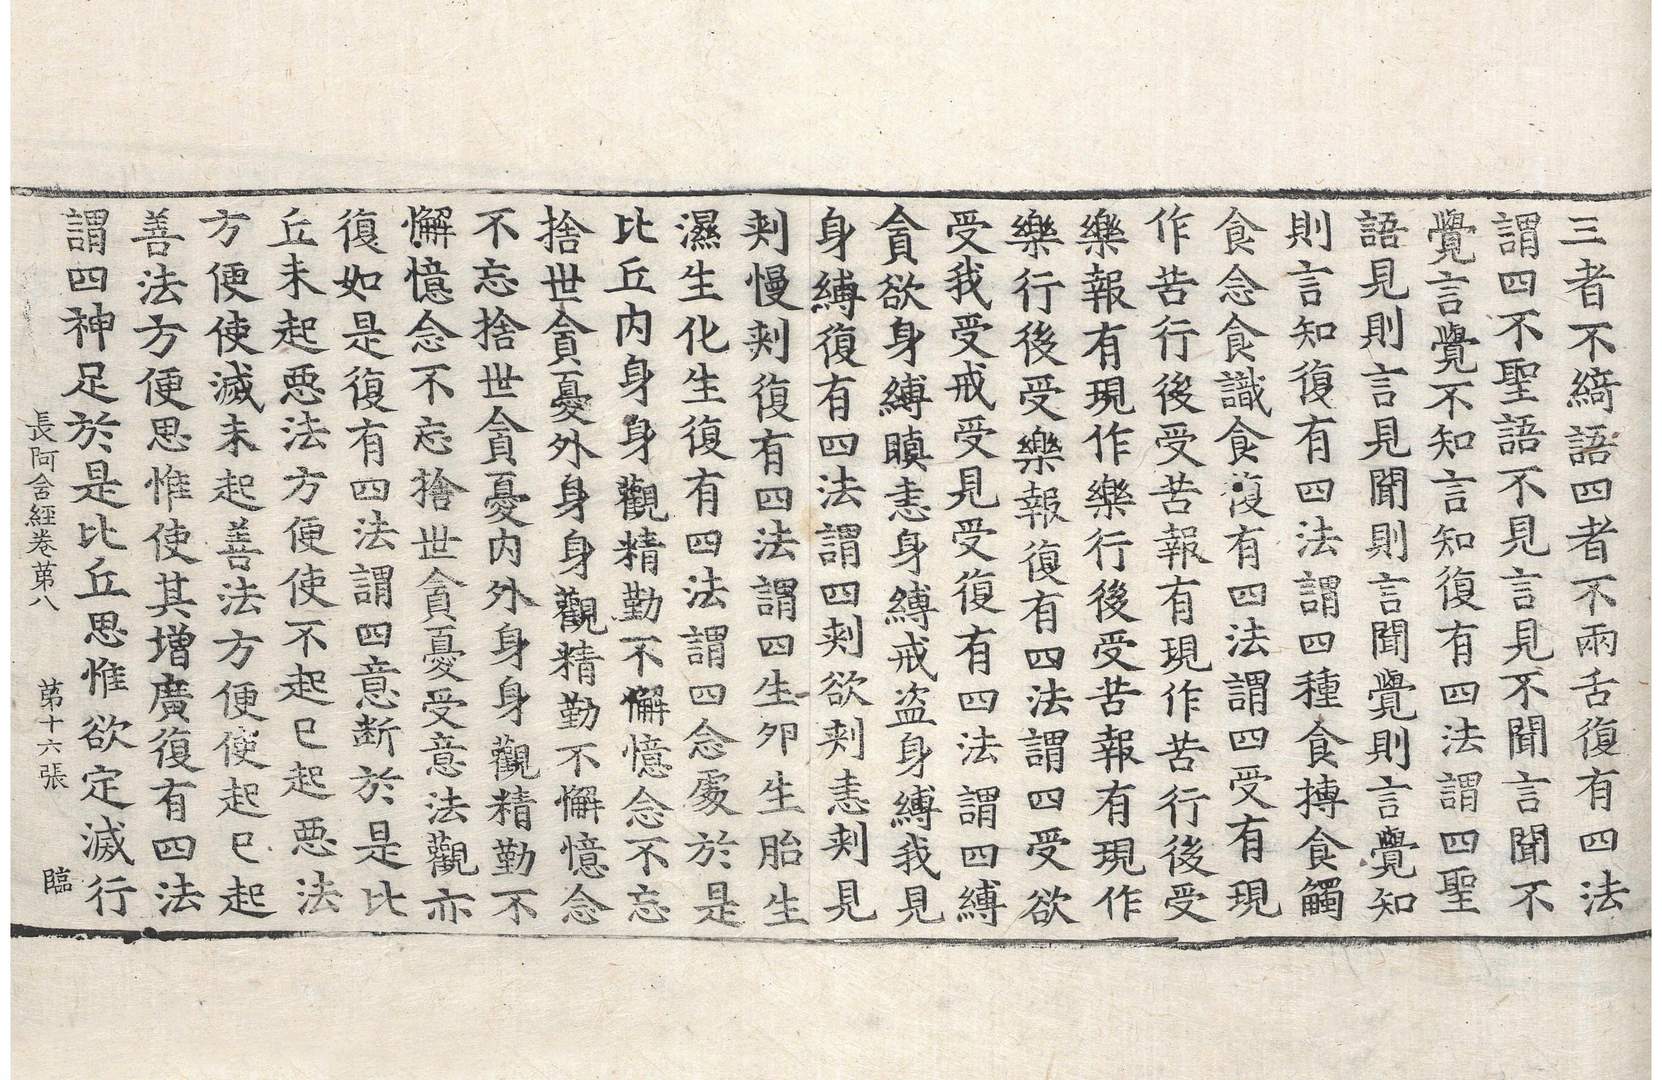 三者不綺語四者不兩舌復有四法
謂四不聖語不見言見不聞言聞不
覺言覺不知言知復有四法謂四聖
語見則言見聞則言聞覺則言覺知
則言知復有四法謂四種食摶食觸
食念食識食復有四法謂四受有現
作苦行後受苦報有現作苦行後受
樂報有現作樂行後受苦報有現作
樂行後受樂報復有四法謂四受欲
受我受戒受見受復有四法謂四縛
貪欲身縛瞋恚身縛戒盜身縛我見
身縛復有四法謂四刾欲刾恚刾見
刾慢刾復有四法謂四生卵生胎生
濕生化生復有四法謂四念處於是
比丘內身身觀精勤不懈憶念不忘
捨世貪憂外身身觀精勤不懈憶念
不忘捨世貪憂內外身身觀精勤不
懈憶念不忘捨世貪憂受意法觀亦
復如是復有四法謂四意断於是比
丘未起惡法方便使不起已起惡法
方便使滅未起善法方便使起已起
善法方便思惟使其增廣復有四法
謂四神足於是比丘思惟欲定滅行
長阿含經卷第八 第十六張 臨